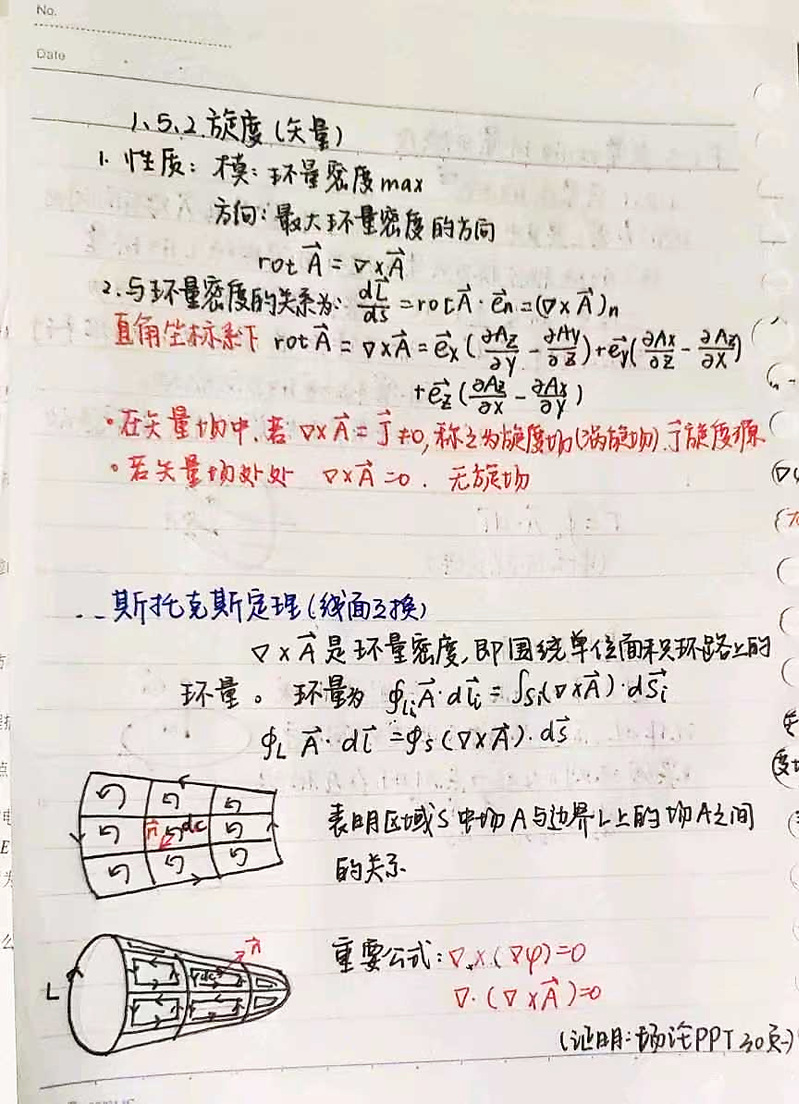 No.
Date
1.5.2 旋度(矢量)
1. 性质: 模: 环量密度max
方向: 最大环量密度的方向
rot A⃗ = ∇×A⃗
2. 与环量密度的关系为: dL⃗/ds = rot A⃗·e⃗n = (∇×A⃗)n
直角坐标系下 rot A⃗ = ∇×A⃗ = e⃗x(∂Az/∂y - ∂Ay/∂z) + e⃗y(∂Ax/∂z - ∂Az/∂x)
+ e⃗z(∂Az/∂x - ∂Ax/∂y)
·在矢量场中,若 ∇×A⃗ = J⃗ ≠0, 称之为旋度场(涡旋场). J⃗旋度源
·若矢量场处处 ∇×A⃗ =0. 无旋场
斯托克斯定理(线面互换)
∇×A⃗是环量密度,即围绕单位面积环路上的
环量。 环量为 ∮Li A⃗·dl⃗i = ∫Si(∇×A⃗)·dS⃗i
∮L A⃗·dl⃗ = ∮s(∇×A⃗)·ds⃗
n⃗ dc
表明区域S中场A与边界L上的场A之间
的关系
n⃗
L
重要公式: ∇×(∇φ)=0
∇·(∇×A⃗)=0
(证明:场论PPT 30页)